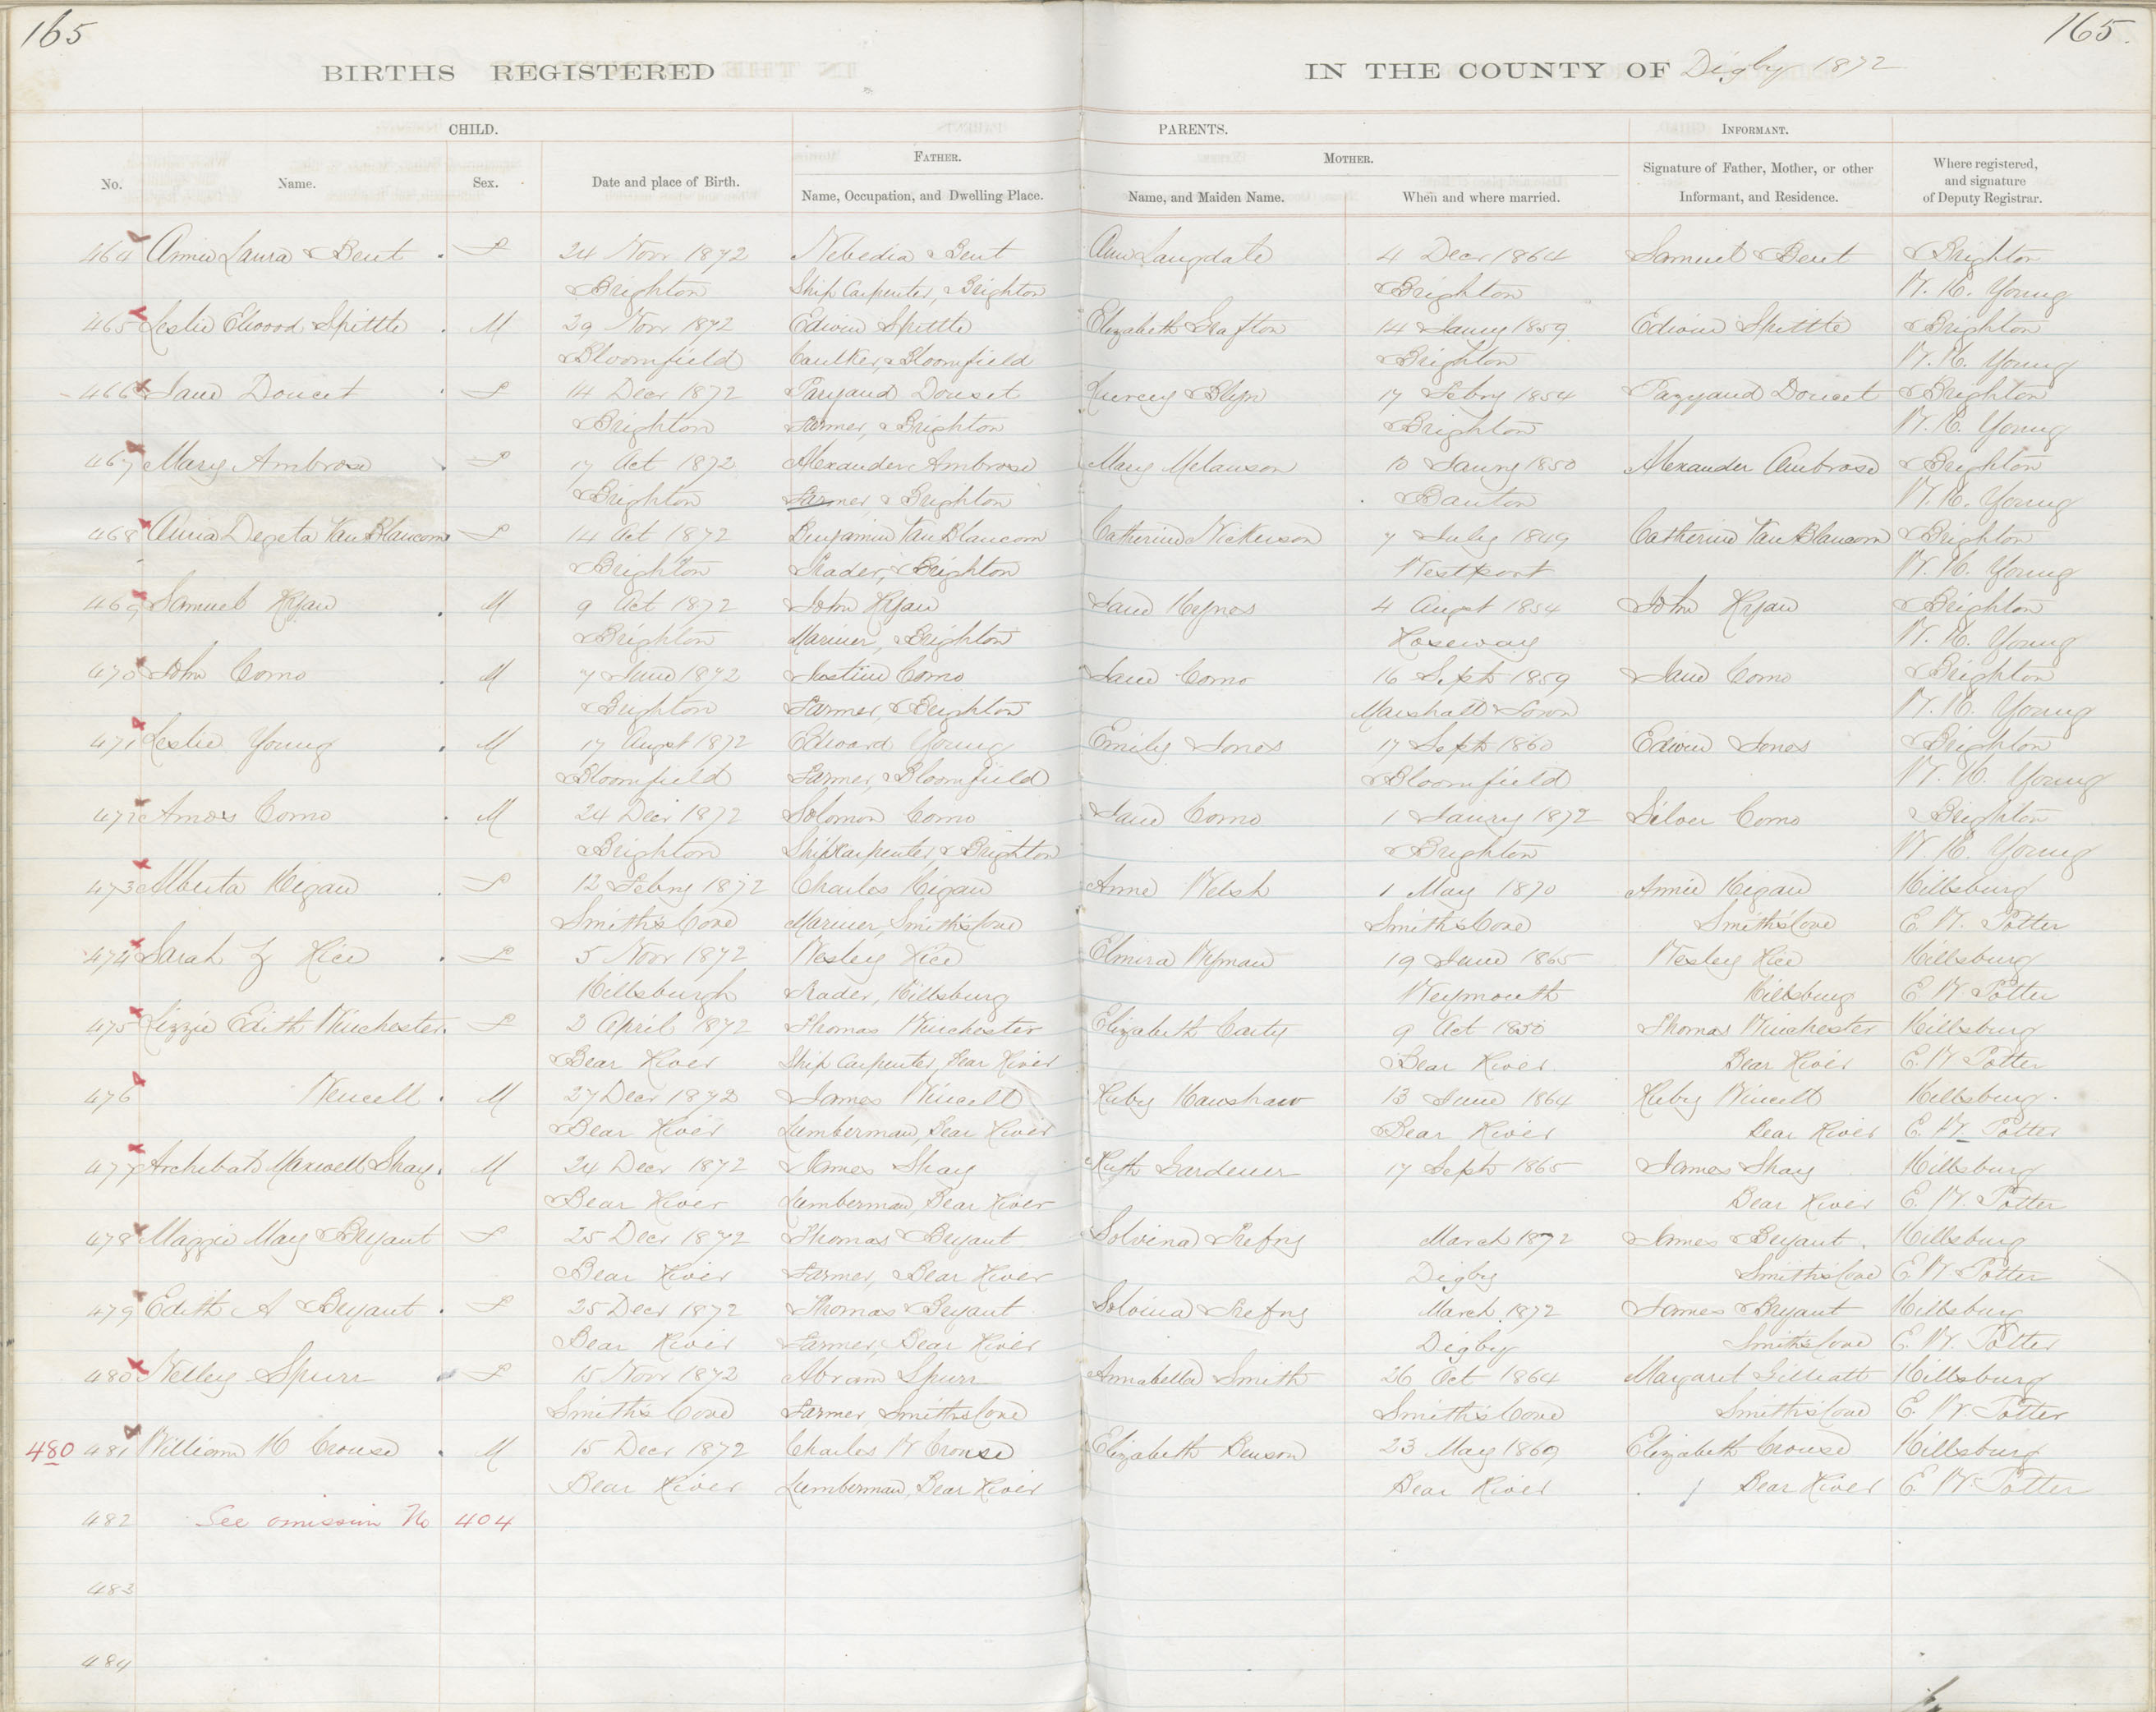 165
165.
BIRTHS REGISTERED IN THE COUNTY OF Digby 1872
CHILD. PARENTS. INFORMANT.
FATHER. MOTHER.
No. Name. Sex. Date and place of Birth. Name, Occupation, and Dwelling Place. Name, and Maiden Name. When and where married. Signature of Father, Mother, or other Informant, and Residence. Where registered, and signature of Deputy Registrar.
464 Annie Laura Bent F 24 Novr 1872 Nebedia Bent Ann Langdale 4 Decr 1864 Samuel Bent Brighton
Brighton Ship Carpenter, Brighton Brighton W. H. Young
465 Leslie Elwood Spittle M 29 Novr 1872 Edwin Spittle Elizabeth Grafton 14 Jany 1859 Edwin Spittle Brighton
Bloomfield Caulker, Bloomfield Brighton W. H. Young
466 Jane Doucet F 14 Decr 1872 Doucet 17 Febry 1854 Doucet Brighton
Brighton Farmer, Brighton Brighton W. H. Young
467 Mary Ambrose F 17 Oct 1872 Alexander Ambrose Mary Melanson 10 Jany 1850 Alexander Ambrose Brighton
Brighton Farmer, Brighton W. H. Young
468 Van Blaucom F 14 Oct 1872 Benjamin Van Blaucom Catherine Nickerson 7 July 1849 Catherine Van Blaucom Brighton
Brighton Trader, Brighton Westport W. H. Young
469 Samuel Ryan M 9 Oct 1872 John Ryan Jane Haynes 4 Augst 1854 John Ryan Brighton
Brighton Mariner, Brighton Roseway W. H. Young
470 John Como M 7 June 1872 Justin Como Jane Como 16 Sept 1859 Jane Como Brighton
Brighton Farmer, Brighton Marshall Town W. H. Young
471 Leslie Young M 17 Augst 1872 Edward Young Emily Jones 17 Sept 1860 Edwin Jones Brighton
Bloomfield Farmer, Bloomfield Bloomfield W. H. Young
472 Amos Como M 24 Decr 1872 Solomon Como Jane Como 1 Janry 1872 Silver Como Brighton
Brighton Ship Carpenter, Brighton Brighton W. H. Young
473 Alberta Higan F 12 Febry 1872 Charles Higan Anne Welsh 1 May 1870 Annie Higan Hillsburg
Smith's Cove Mariner, Smith's Cove Smith's Cove Smith's Cove E. W. Potter
474 Sarah J Rice F 5 Novr 1872 Wesley Rice Elmira Wyman 19 June 1865 Wesley Rice Hillsburg
Hillsburgh Trader, Hillsburg Weymouth Hillsburg E W Potter
475 Lizzie Edith Winchester F 2 April 1872 Thomas Winchester Elizabeth Carty 9 Oct 1850 Thomas Winchester Hillsburg
Bear River Ship Carpenter, Bear River Bear River Bear River E. W Potter
476 Wencell M 27 Decr 1872 James Wincelt Ruby Hanshaw 13 June 1864 Ruby Wincelt Hillsburg
Bear River Lumberman, Bear River Bear River Bear River E. W. Potter
477 Archibald Maxwell Shay M 24 Decr 1872 James Shay Ruth Gardener 17 Sept 1865 James Shay Hillsburg
Bear River Lumberman, Bear River Bear River E. W. Potter
478 Maggie May Bryant F 25 Decr 1872 Thomas Bryant Solvina Trefry March 1872 James Bryant Hillsburg
Bear River Farmer, Bear River Digby Smith's Cove E W Potter
479 Edith A Bryant F 25 Decr 1872 Thomas Bryant Solvina Trefry March 1872 James Bryant Hillsburg
Bear River Farmer, Bear River Digby Smith's Cove E. W. Potter
480 Nelley Spurr F 15 Novr 1872 Abram Spurr Annabella Smith 26 Oct 1864 Margaret Gilliatt Hillsburg
Smith's Cove Farmer, Smith's Cove Smith's Cove Smith's Cove E. W Potter
480 481 William H Crouse M 15 Decr 1872 Charles W Crouse Elizabeth Benson 23 May 1869 Elizabeth Crouse Hillsburg
Bear River Lumberman, Bear River Bear River Bear River E. W. Potter
482 See omission No 404
483
484